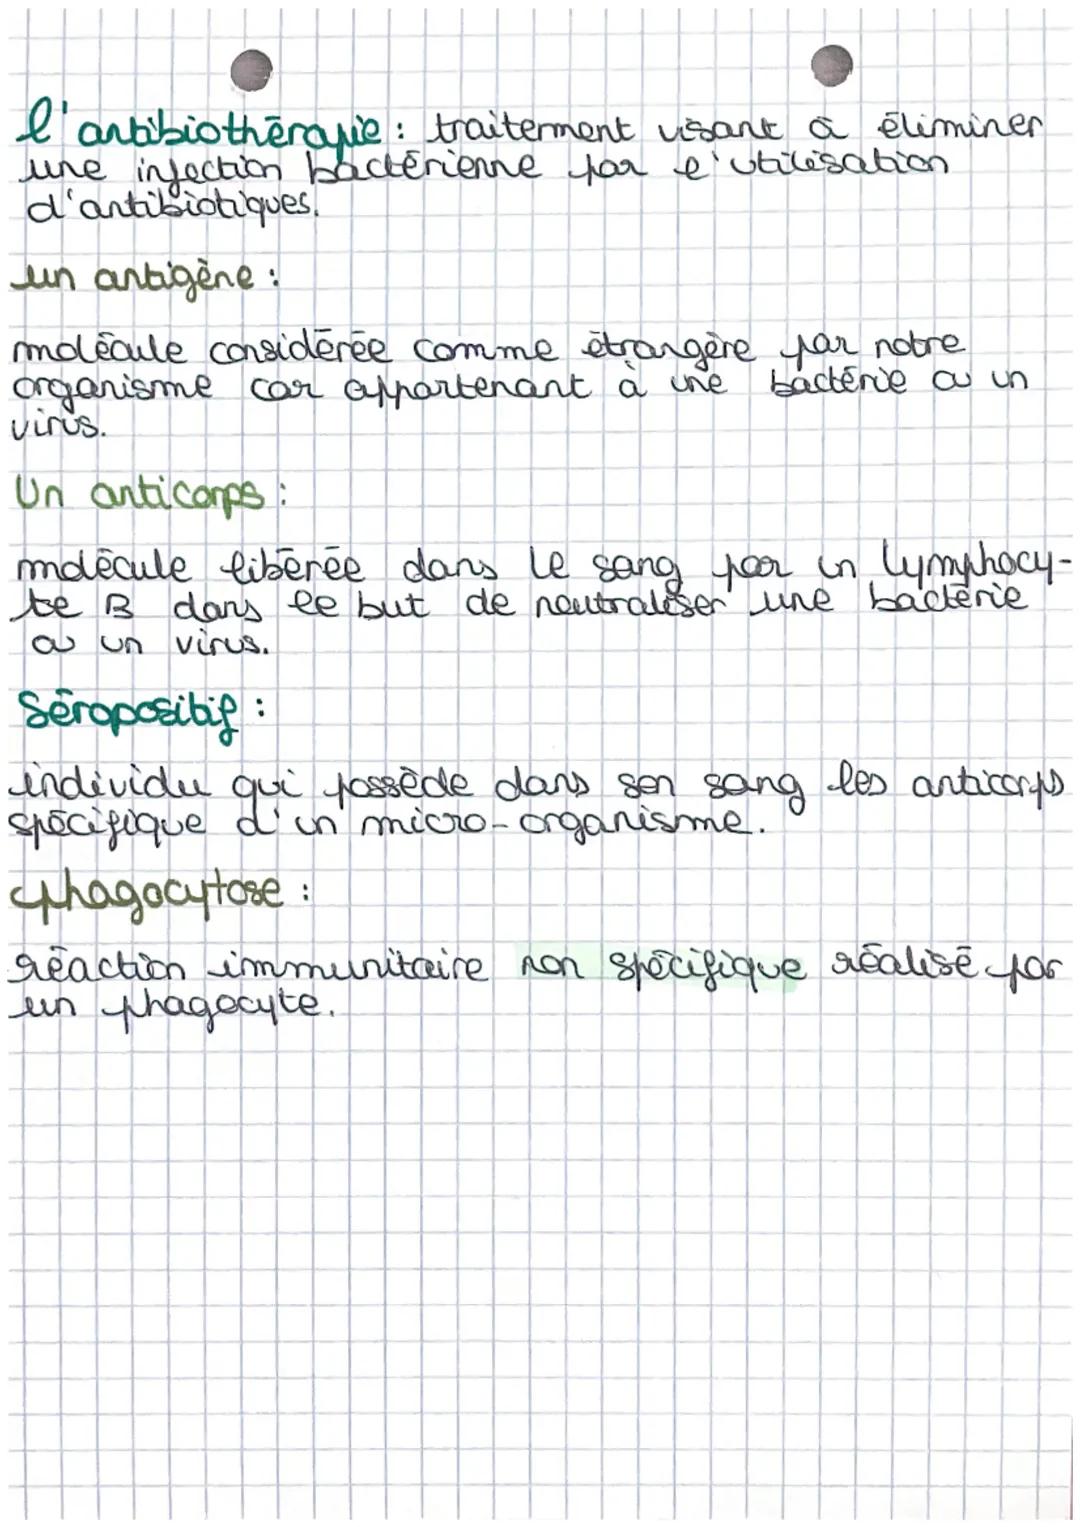 l'antibiothérapie : traitement visant à éliminer
une infection bactérienne par l'utilisation
d'antibiotiques.
un antigène :
molécule considérée comme étrangère par notre
organisme car appartenant à une bactérie ou un
virus.
Un anticorps :
molécule libérée dans le sang par un lymphocy-
te B dans le but de neutraliser une bactérie
ou un virus.
Séropositif :
individu qui possède dans son sang les anticorps
spécifique d'un micro-organisme.
phagocytose :
réaction immunitaire non spécifique réalisé par
un phagocyte.